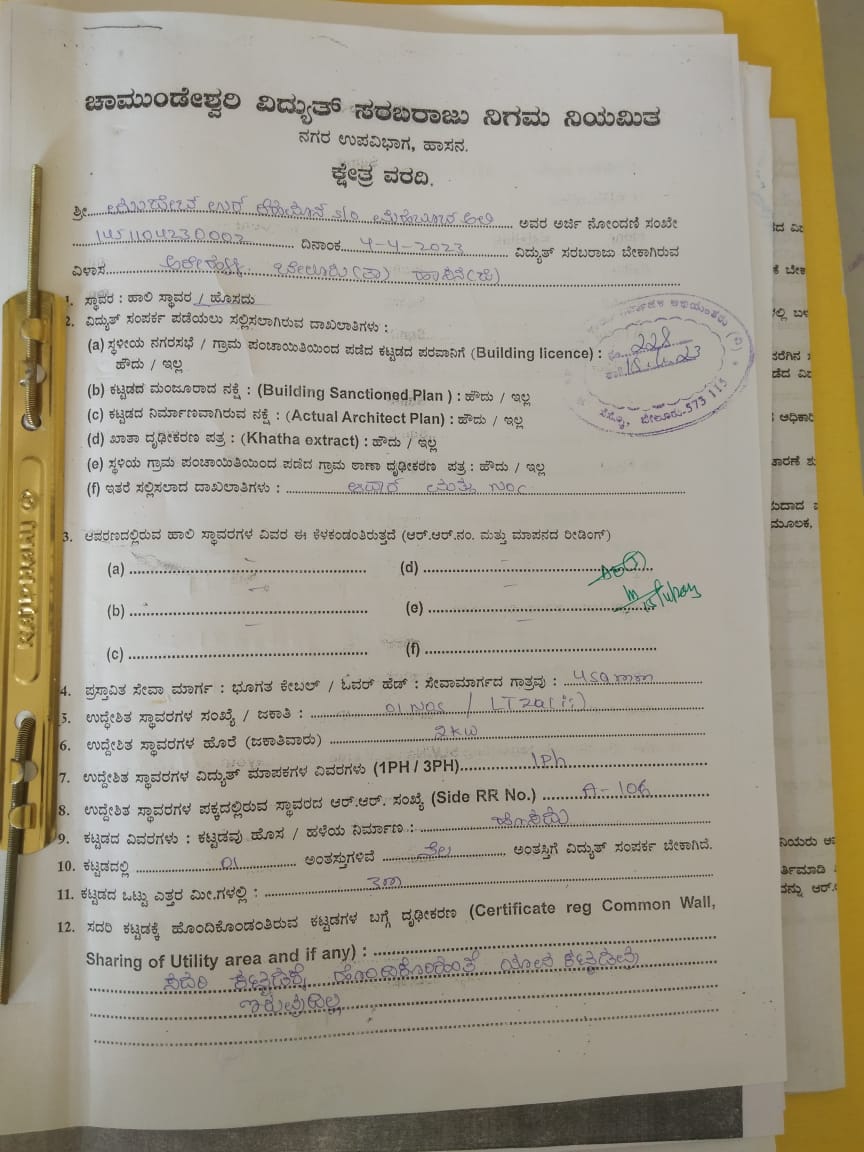 ಚಾಮುಂಡೇಶ್ವರಿ ವಿದ್ಯುತ್ ಸರಬರಾಜು ನಿಗಮ ನಿಯಮಿತ
ನಗರ ಉಪವಿಭಾಗ, ಹಾಸನ.
ಕ್ಷೇತ್ರ ವರದಿ.
ಶ್ರೀ ಅವರ ಅರ್ಜಿ ನೋಂದಣಿ ಸಂಖೇ
ದಿನಾಂಕ 4-4-2023 ವಿದ್ಯುತ್ ಸರಬರಾಜು ಬೇಕಾಗಿರುವ
ವಿಳಾಸ
1. ಸ್ಥಾವರ : ಹಾಲಿ ಸ್ಥಾವರ / ಹೊಸದು
2. ವಿದ್ಯುತ್ ಸಂಪರ್ಕ ಪಡೆಯಲು ಸಲ್ಲಿಸಲಾಗಿರುವ ದಾಖಲಾತಿಗಳು :
(a) ಸ್ಥಳೀಯ ನಗರಸಭೆ / ಗ್ರಾಮ ಪಂಚಾಯಿತಿಯಿಂದ ಪಡೆದ ಕಟ್ಟಡದ ಪರವಾನಿಗೆ (Building licence) :
ಹೌದು / ಇಲ್ಲ
228
ಬೇಲೂರು-573 115
(b) ಕಟ್ಟಡದ ಮಂಜೂರಾದ ನಕ್ಷೆ : (Building Sanctioned Plan ) : ಹೌದು / ಇಲ್ಲ
(c) ಕಟ್ಟಡದ ನಿರ್ಮಾಣವಾಗಿರುವ ನಕ್ಷೆ : (Actual Architect Plan) : ಹೌದು / ಇಲ್ಲ
(d) ಖಾತಾ ದೃಢೀಕರಣ ಪತ್ರ : (Khatha extract) : ಹೌದು / ಇಲ್ಲ
(e) ಸ್ಥಳಿಯ ಗ್ರಾಮ ಪಂಚಾಯಿತಿಯಿಂದ ಪಡೆದ ಗ್ರಾಮ ಠಾಣಾ ದೃಢೀಕರಣ ಪತ್ರ : ಹೌದು / ಇಲ್ಲ
(f) ಇತರೆ ಸಲ್ಲಿಸಲಾದ ದಾಖಲಾತಿಗಳು : ಆಧಾರ್ ಮತ್ತು NOC
3. ಆವರಣದಲ್ಲಿರುವ ಹಾಲಿ ಸ್ಥಾವರಗಳ ವಿವರ ಈ ಕೆಳಕಂಡಂತಿರುತ್ತದೆ (ಆರ್.ಆರ್.ನಂ. ಮತ್ತು ಮಾಪನದ ರೀಡಿಂಗ್)
(a) (d)
(b) (e)
(c) (f)
4. ಪ್ರಸ್ತಾವಿತ ಸೇವಾ ಮಾರ್ಗ : ಭೂಗತ ಕೇಬಲ್ / ಓವರ್ ಹೆಡ್ : ಸೇವಾಮಾರ್ಗದ ಗಾತ್ರವು :
5. ಉದ್ದೇಶಿತ ಸ್ಥಾವರಗಳ ಸಂಖ್ಯೆ / ಜಕಾತಿ : 01 Nos / LT2a(ii)
6. ಉದ್ದೇಶಿತ ಸ್ಥಾವರಗಳ ಹೊರೆ (ಜಕಾತಿವಾರು) 2KW
7. ಉದ್ದೇಶಿತ ಸ್ಥಾವರಗಳ ವಿದ್ಯುತ್ ಮಾಪಕಗಳ ವಿವರಗಳು (1PH / 3PH) 1Ph
8. ಉದ್ದೇಶಿತ ಸ್ಥಾವರಗಳ ಪಕ್ಕದಲ್ಲಿರುವ ಸ್ಥಾವರದ ಆರ್.ಆರ್. ಸಂಖ್ಯೆ (Side RR No.) A-106
9. ಕಟ್ಟಡದ ವಿವರಗಳು : ಕಟ್ಟಡವು ಹೊಸ / ಹಳೆಯ ನಿರ್ಮಾಣ : ಹೊಸದು
10. ಕಟ್ಟಡದಲ್ಲಿ 01 ಅಂತಸ್ತುಗಳಿವೆ ನೆಲ ಅಂತಸ್ತಿಗೆ ವಿದ್ಯುತ್ ಸಂಪರ್ಕ ಬೇಕಾಗಿದೆ.
11. ಕಟ್ಟಡದ ಒಟ್ಟು ಎತ್ತರ ಮೀ.ಗಳಲ್ಲಿ : 3m
12. ಸದರಿ ಕಟ್ಟಡಕ್ಕೆ ಹೊಂದಿಕೊಂಡಂತಿರುವ ಕಟ್ಟಡಗಳ ಬಗ್ಗೆ ದೃಢೀಕರಣ (Certificate reg Common Wall,
Sharing of Utility area and if any) :
ಸದರಿ ಕಟ್ಟಡಕ್ಕೆ ಹೊಂದಿಕೊಂಡಂತೆ ಯಾವ ಕಟ್ಟಡವು
ಇರುವುದಿಲ್ಲ